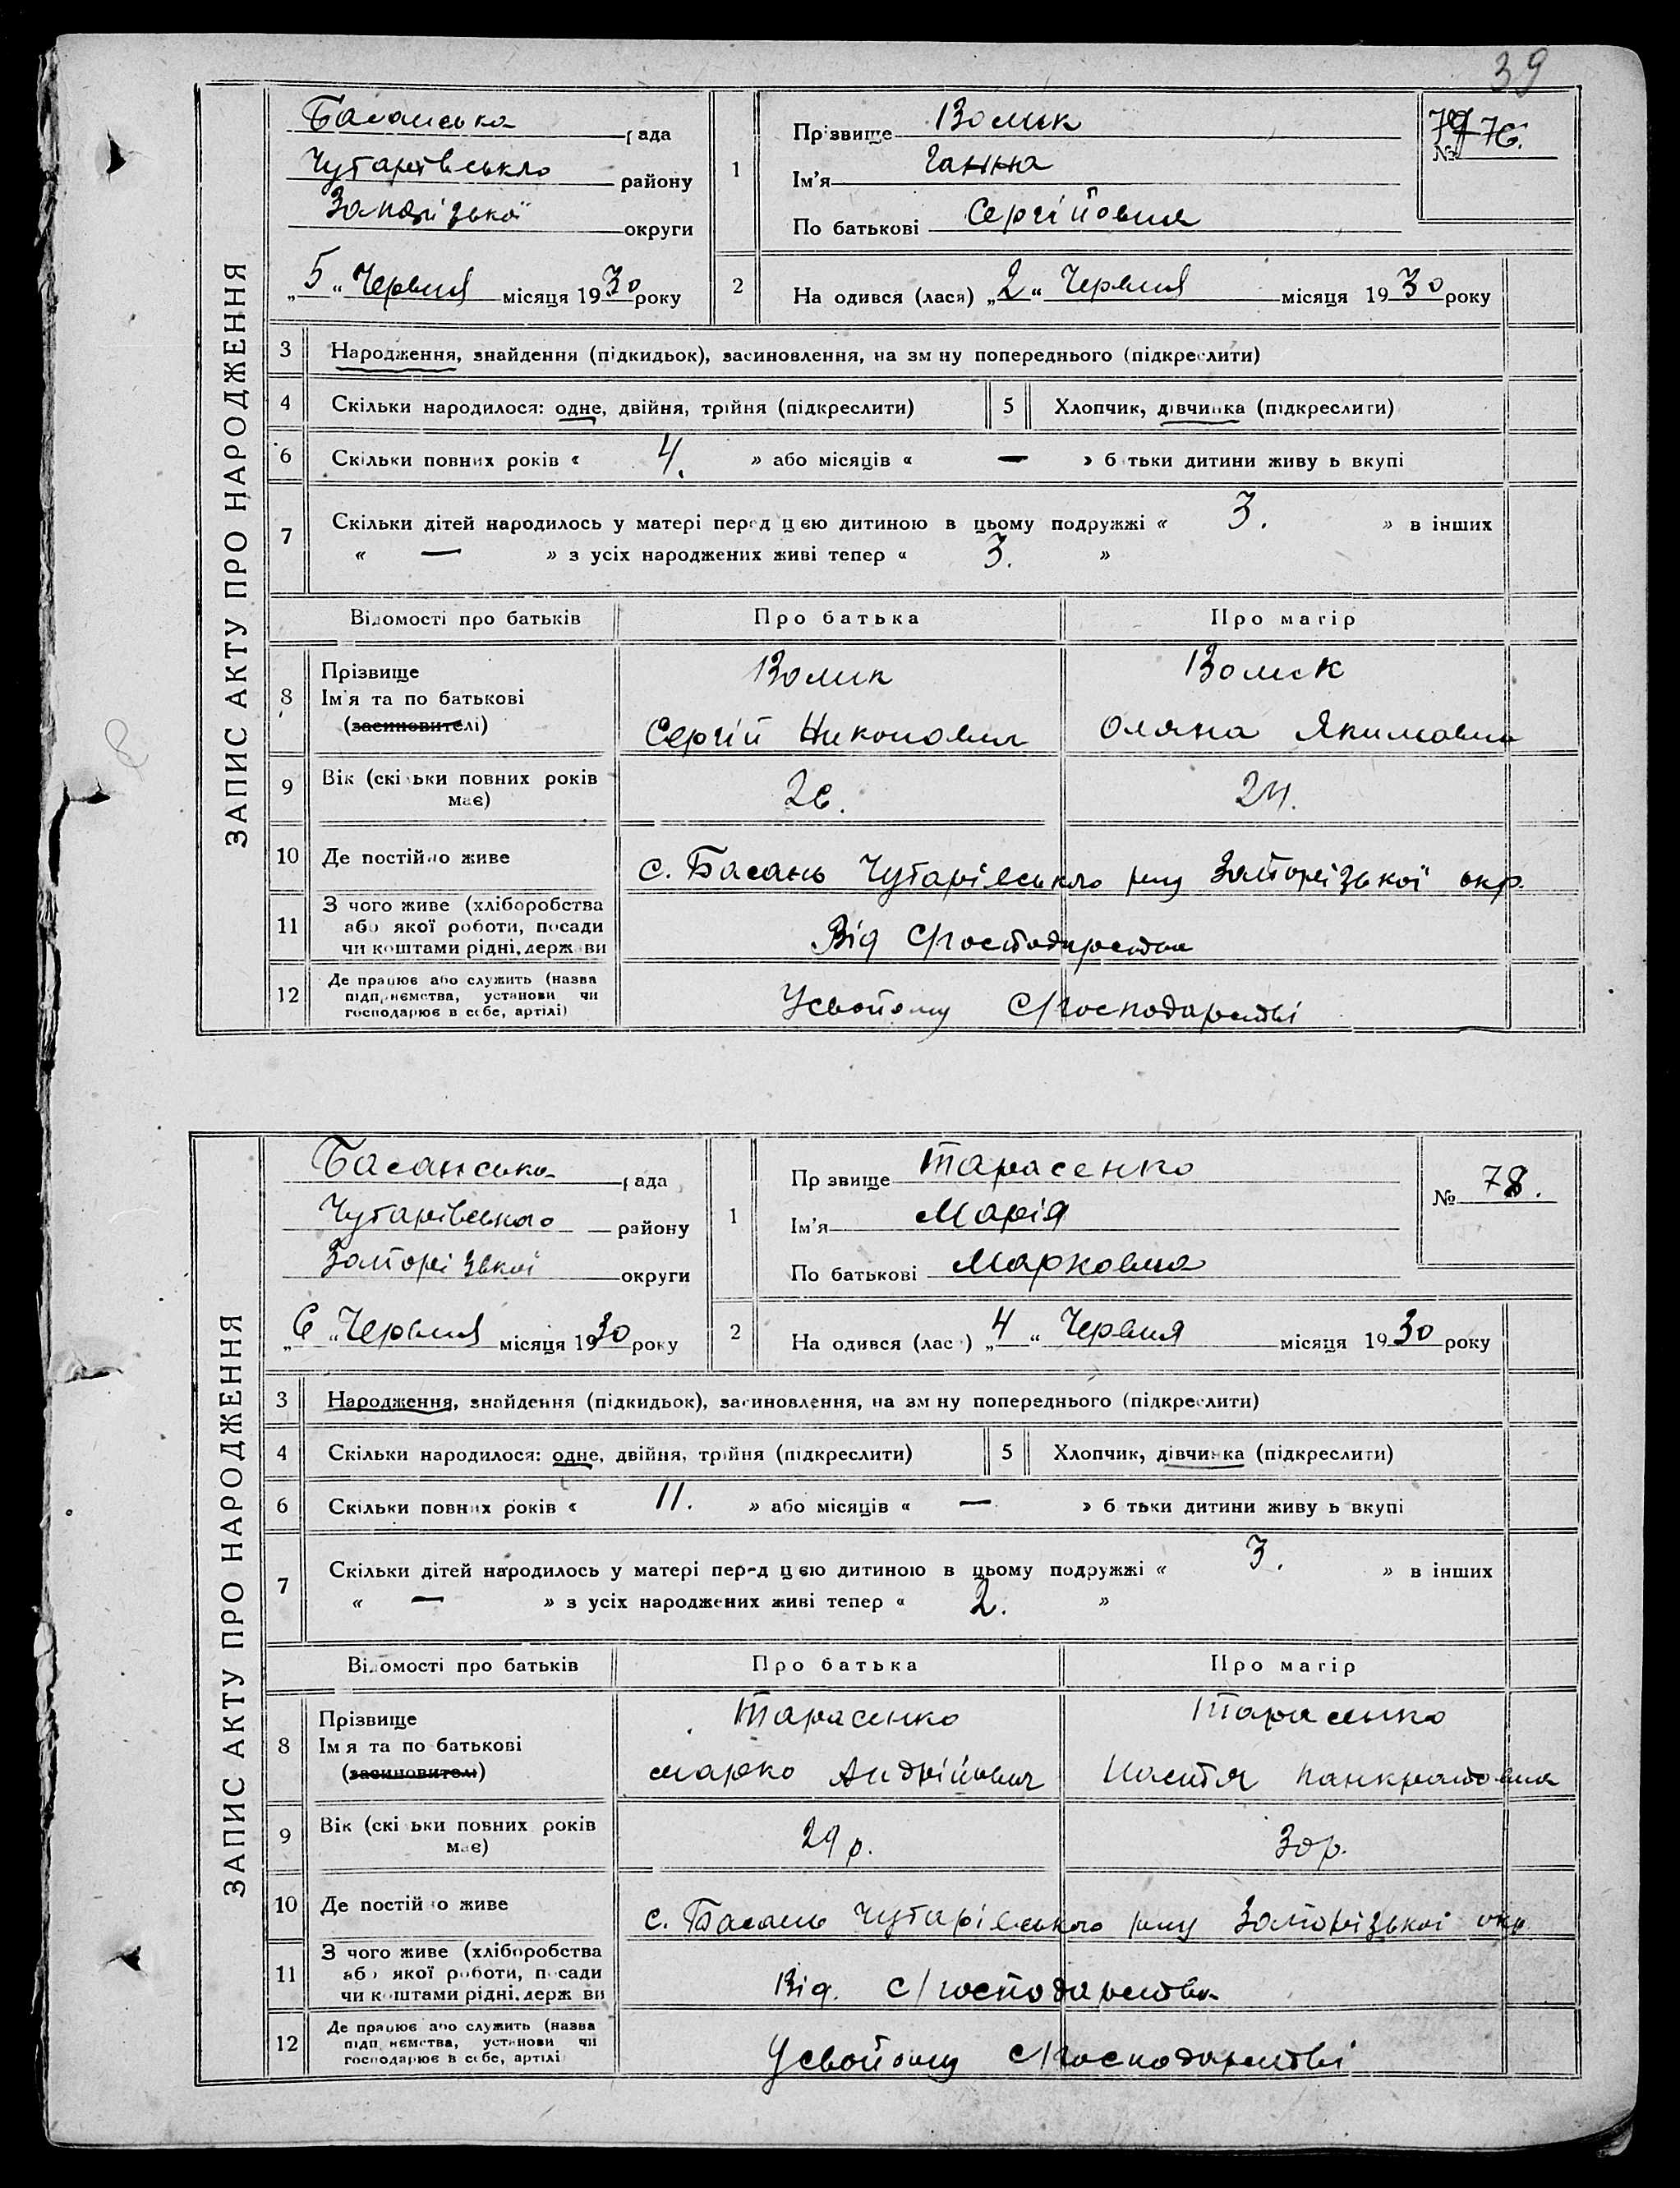 39
ЗАПИС АКТУ ПРО НАРОДЖЕННЯ
Басанська рада
Чубарівського району
Запорізької округи
„5“ Червня місяця 1930 року
1 Прізвище Вовик
Ім'я Ганна
По батькові Сергійовна
№ 76.
2 На одився (лася) „2“ Червня місяця 1930 року
3 Народження, знайдення (підкидьок), засиновлення, на зм ну попереднього (підкреслити)
4 Скільки народилося: одне, двійня, трійня (підкреслити) 5 Хлопчик, дівчинка (підкреслити)
6 Скільки повних років « 4. » або місяців « — » б тьки дитини живу ь вкупі
7 Скільки дітей народилось у матері перед цією дитиною в цьому подружжі « 3. » в інших
« — » з усіх народжених живі тепер « 3. »
Відомості про батьків Про батька Про матір
8 Прізвище
Ім'я та по батькові
(засиновителі)
Вовик Вовик
Сергій Никонович Оляна Якимовна
9 Вік (скі ьки повних років має) 26. 24.
10 Де постійно живе с. Басань Чубарівського р-ну Запорізької окр.
11 З чого живе (хліборобства
або якої роботи, посади
чи коштами рідні, держ ви
Від С/господарства
12 Де працює або служить (назва
підприємства, установи чи
господарює в себе, артілі)
У свойому С/господарстві
ЗАПИС АКТУ ПРО НАРОДЖЕННЯ
Басанська рада
Чубарівського району
Запорізької округи
„6“ Червня місяця 1930 року
1 Пр звище Тарасенко
Ім'я Марія
По батькові Марковна
№ 78.
2 На одився (лас ) „4“ Червня місяця 1930 року
3 Народження, знайдення (підкидьок), засиновлення, на зм ну попереднього (підкреслити)
4 Скільки народилося: одне, двійня, трійня (підкреслити) 5 Хлопчик, дівчинка (підкреслити)
6 Скільки повних років « 11. » або місяців « — » б тьки дитини живу ь вкупі
7 Скільки дітей народилось у матері перед цією дитиною в цьому подружжі « 3. » в інших
« — » з усіх народжених живі тепер « 2. »
Відомості про батьків Про батька Про матір
8 Прізвище
Ім я та по батькові
(засиновителі)
Тарасенко Тарасенко
Марко Андрійович Настя Панкратовна
9 Вік (скі ьки повних років має) 29 р. 30 р.
10 Де постій о живе с. Басань Чубарівського р-ну Запорізької окр.
11 З чого живе (хліборобства
або якої роботи, посади
чи коштами рідні, держ ви
Від. с/господарства
12 Де працює або служить (назва
підприємства, установи чи
господарює в себе, артілі
У свойому с/господарстві